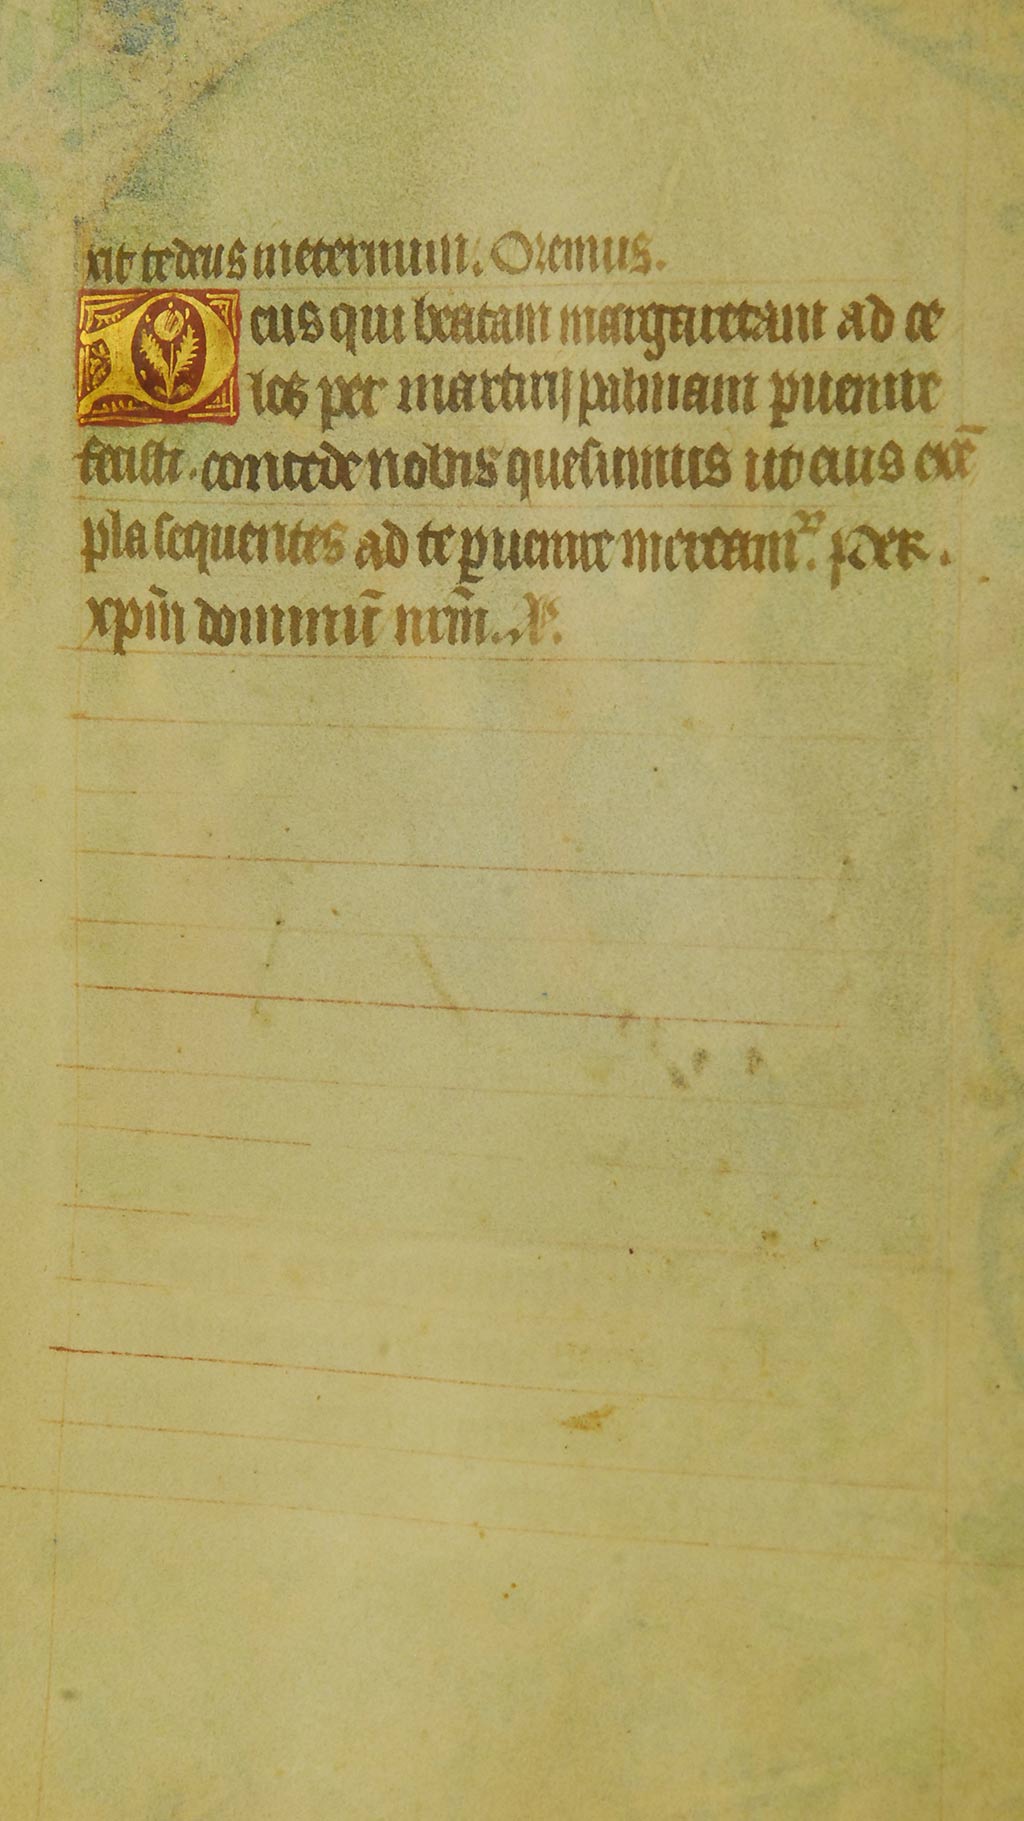 xit te deus in eternum. Oremus.
Deus qui beatam margaretam ad ce
los per martirij palmam p̱uenire
fecisti. concede nobis quesumus ut eius exē
pla sequentes ad te p̱uenire mereamᷣ. per.
xp̄m dominū nr̄m. A.